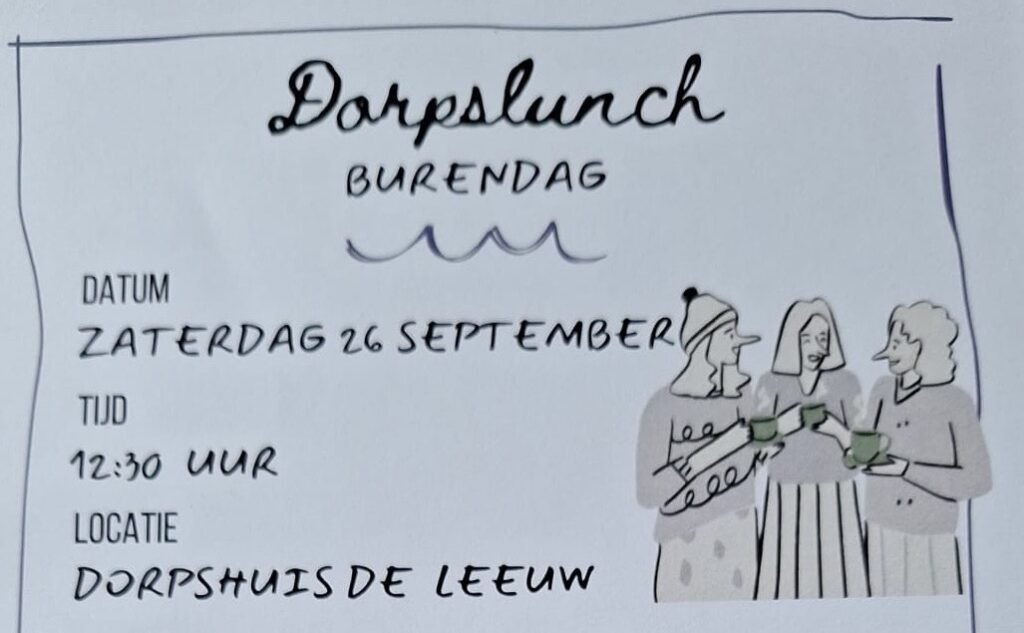 Dorpslunch
BURENDAG
DATUM
ZATERDAG 26 SEPTEMBER
TIJD
12:30 UUR
LOCATIE
DORPSHUIS DE LEEUW